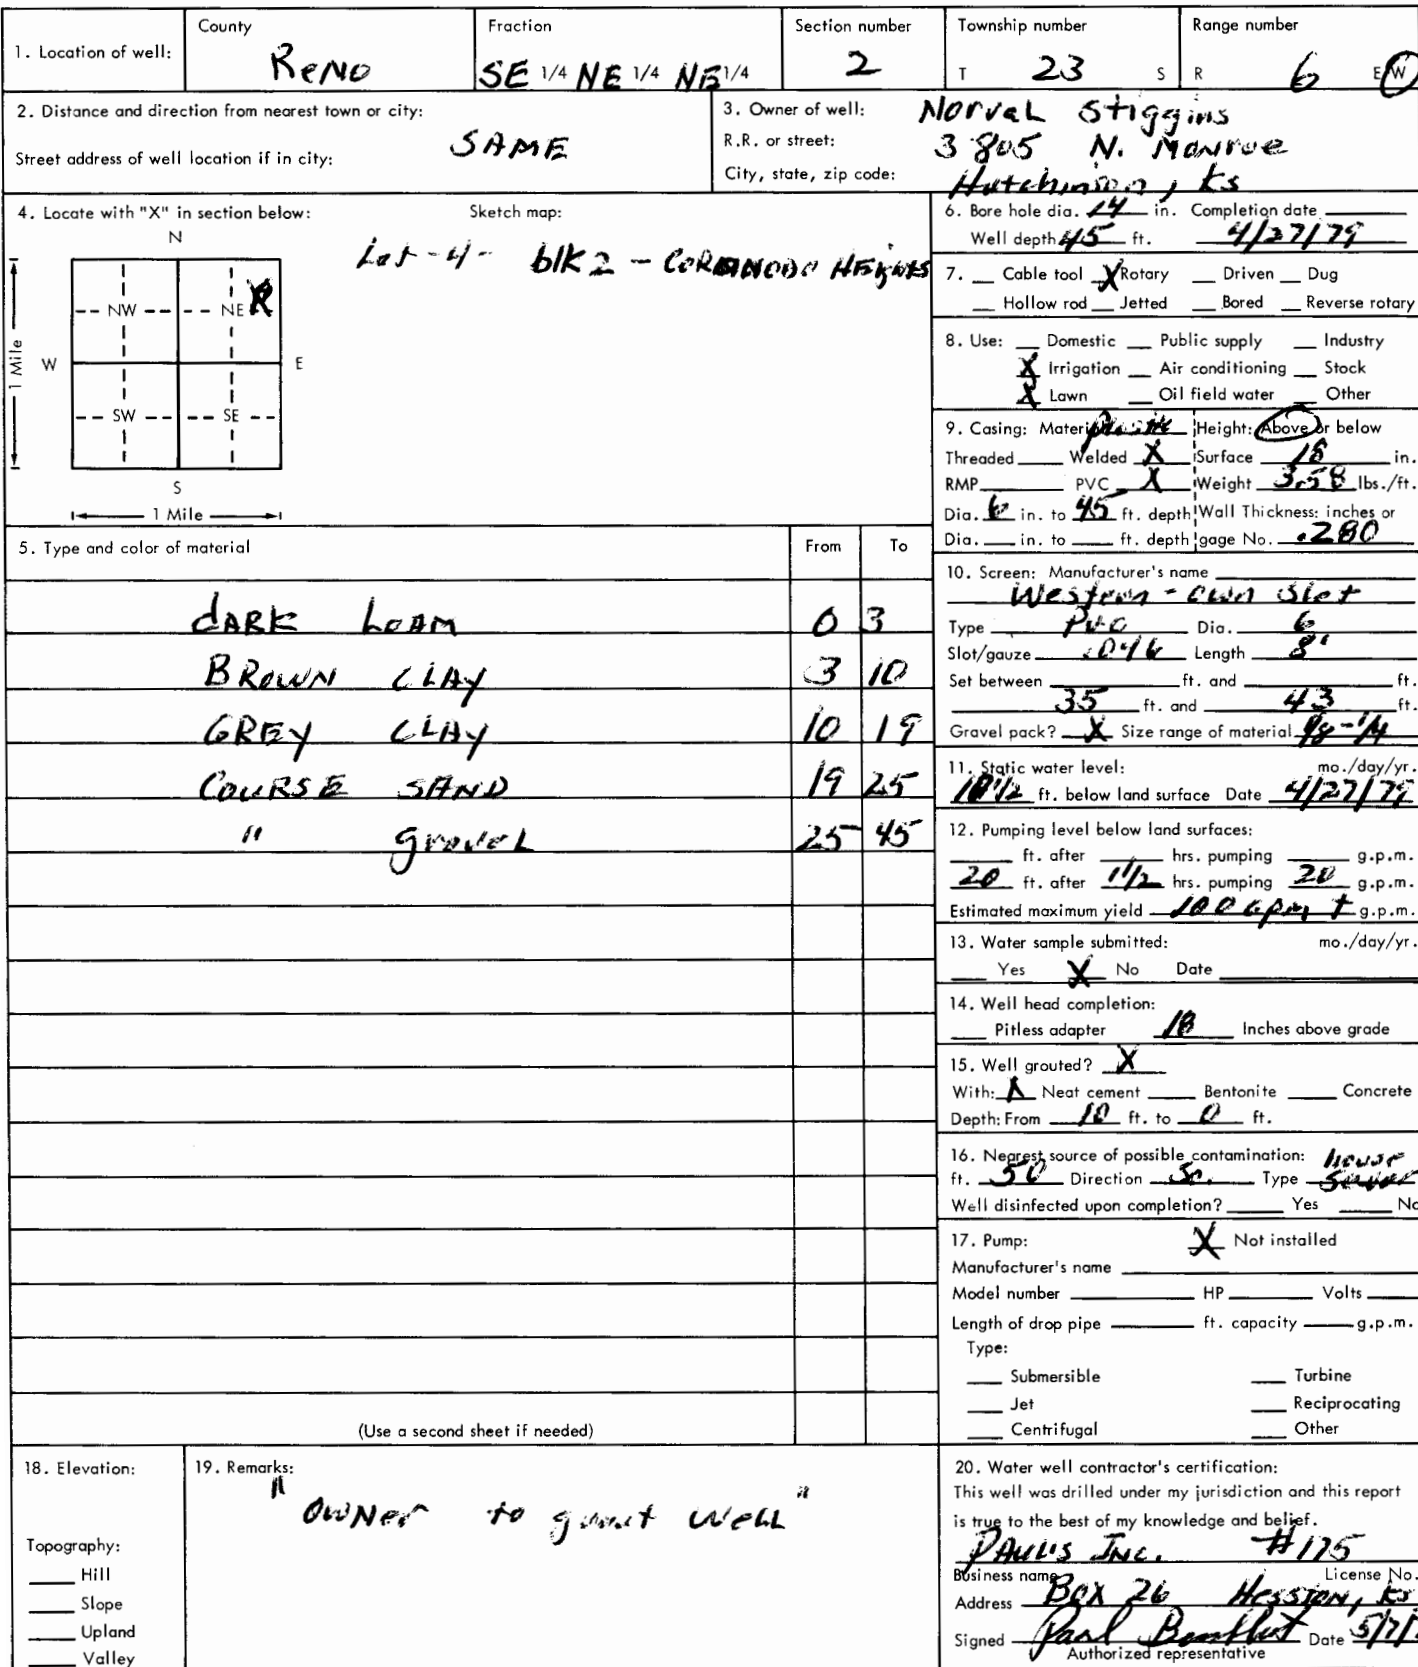 1. Location of well: County Reno Fraction SE 1/4 NE 1/4 NE 1/4 Section number 2 Township number T 23 S Range number R 6 E W
2. Distance and direction from nearest town or city:
Street address of well location if in city: SAME
3. Owner of well: Norval Stiggins
R.R. or street: 3805 N. Monroe
City, state, zip code: Hutchinson, Ks
4. Locate with "X" in section below: Sketch map:
Lot -4- blk 2 - Heights
N
NW NE
1 Mile W E
SW SE
S
1 Mile
5. Type and color of material From To
DARK LOAM 0 3
BROWN CLAY 3 10
GREY CLAY 10 19
COURSE SAND 19 25
" gravel 25 45
(Use a second sheet if needed)
6. Bore hole dia. 14 in. Completion date
Well depth 45 ft. 4/27/79
7. Cable tool X Rotary Driven Dug
Hollow rod Jetted Bored Reverse rotary
8. Use: Domestic Public supply Industry
X Irrigation Air conditioning Stock
X Lawn Oil field water Other
9. Casing: Material plastic Height: Above or below
Threaded Welded X Surface 18 in.
RMP PVC X Weight 3.58 lbs./ft.
Dia. 6 in. to 45 ft. depth Wall Thickness: inches or
Dia. in. to ft. depth gage No. .280
10. Screen: Manufacturer's name
Western - own Slot
Type PVC Dia. 6
Slot/gauze Length 8'
Set between ft. and ft.
35 ft. and 43 ft.
Gravel pack? X Size range of material 1/8 - 1/4
11. Static water level: mo./day/yr.
ft. below land surface Date 4/27/79
12. Pumping level below land surfaces:
ft. after hrs. pumping g.p.m.
20 ft. after 1 1/2 hrs. pumping 20 g.p.m.
Estimated maximum yield 100 GPM + g.p.m.
13. Water sample submitted: mo./day/yr.
Yes X No Date
14. Well head completion:
Pitless adapter 18 Inches above grade
15. Well grouted? X
With: X Neat cement Bentonite Concrete
Depth: From 10 ft. to 0 ft.
16. Nearest source of possible contamination: house
ft. 50 Direction So. Type Sewer
Well disinfected upon completion? Yes No
17. Pump: X Not installed
Manufacturer's name
Model number HP Volts
Length of drop pipe ft. capacity g.p.m.
Type:
Submersible Turbine
Jet Reciprocating
Centrifugal Other
18. Elevation:
Topography:
Hill
Slope
Upland
Valley
19. Remarks:
"OWNER to grout WELL"
20. Water well contractor's certification:
This well was drilled under my jurisdiction and this report
is true to the best of my knowledge and belief.
PAUL'S INC. #175
Business name License No.
Address Box 26 HESSTON, KS
Signed Paul Date 5/7/
Authorized representative